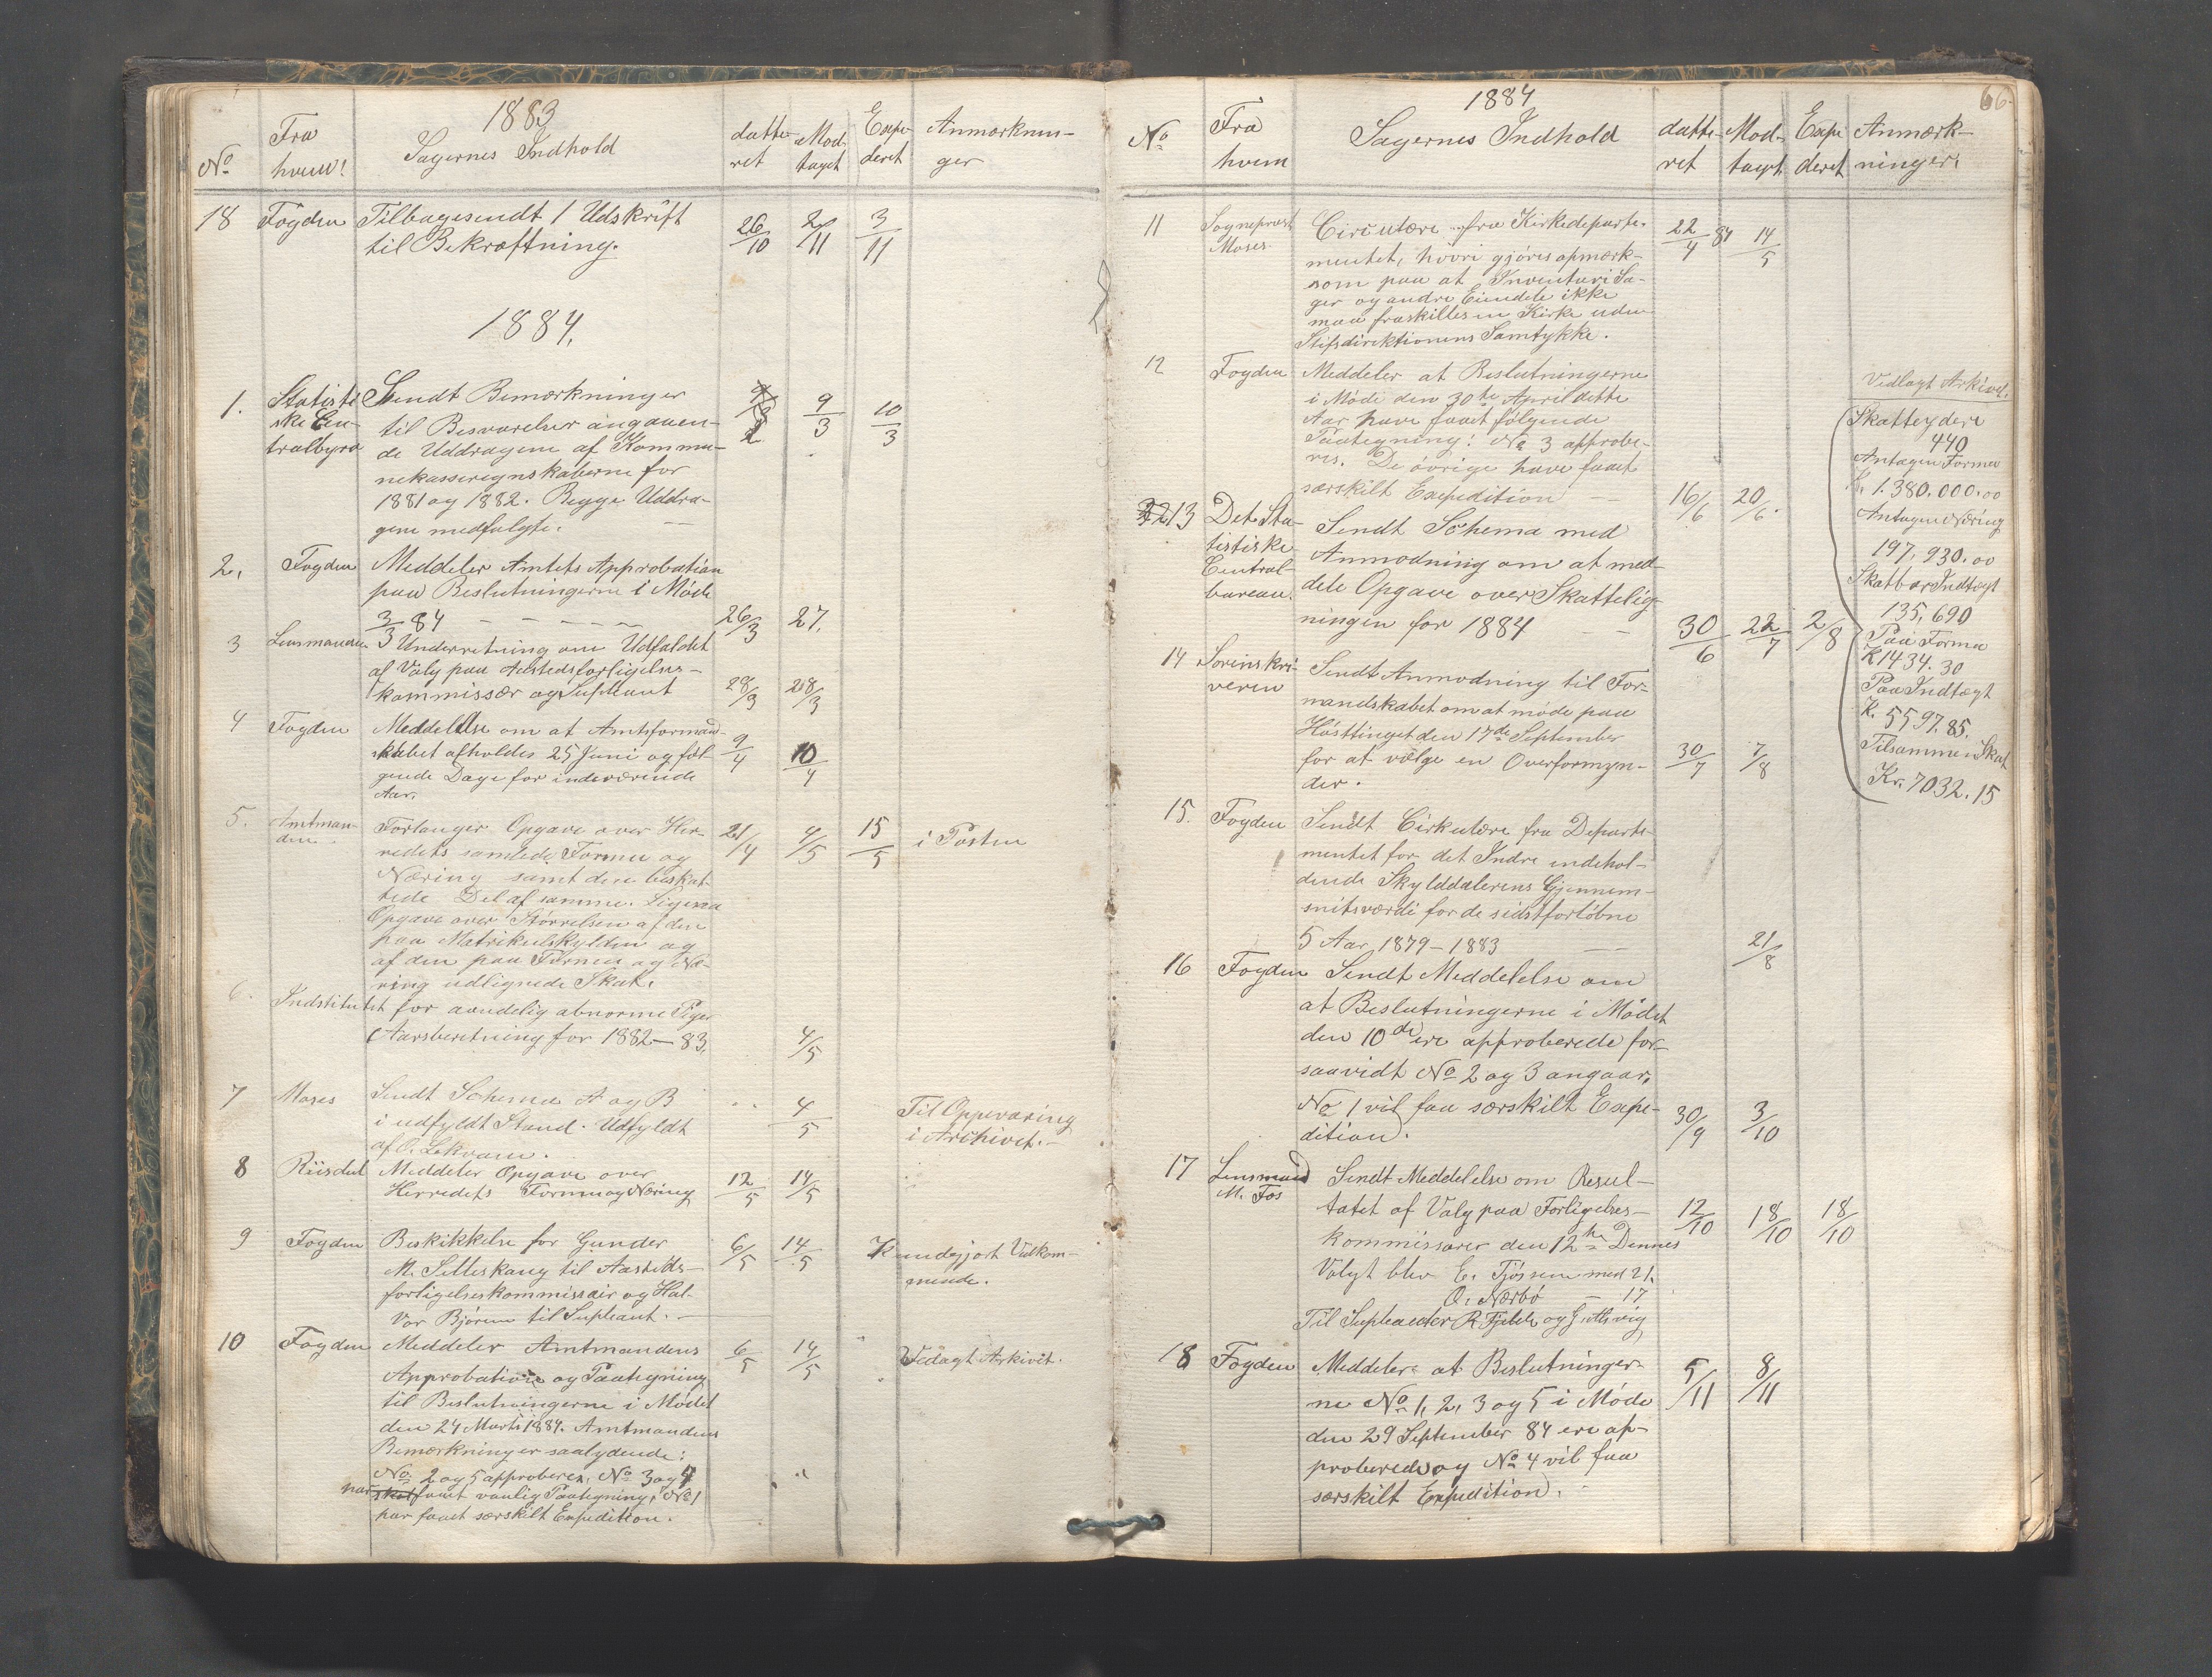 1883
No Fra hvem! Sagernes Indhold datte- ret Mod- taget Expe- deret Anmærknin- ger
18 Fogden Tilbagesendt 1 Udskrift 26/10 2/11 3/11
til Bekræftning.
1884.
1. Statisti- Sendt Bemærkninger 9/3 10/3
ske Cen- til Besvarelser angaaen-
tralbyro de Uddragene af Kommu-
nekasseregnskaberne for
1881 og 1882. Begge Uddra-
gene medfulgte.
2. Fogden Meddeler Amtets Approbation
paa Beslutningerne i Møde
3/3 84 26/3 27.
3 Lensmanden Underretning om Udfaldet
af Valg paa Aastedsforligelses-
kommissær og Supleant 28/3 28/3
4 Fogden Meddelelse om at Amtsformand-
skabet afholdes 25 Juni og føl- 9/4 10/4
gende Dage for indeværende
Aar.
5. Amtman- Forlanger Opgave over Her- 21/4 4/5 15/5 i Posten
den. redets samlede Formue og
Næring samt den beskat-
tede Del af samme. Ligesaa
Opgave over Størrelsen af den
paa Matrikulskylden og
af den paa Formue og Næ-
ring udlignede Skat.
6. Indstitutet for aandelig abnorme Piger
Aarsberetning for 1882-83. 4/5
7 Moses Sendt Schema A og B 4/5 Til Oppevaring
i udfyldt Stand. Udfyldt i Archivet.-
af O. Lekvam.
8 Riisdal Meddeler Opgave over 12/5 14/5
Herredets Formue og Næring
9 Fogden Beskikkelse for Gunder 6/5 14/5 Kundgjort Vedkom-
M. Selleskaug til Aasteds- mende.
forligelseskommissair og Hal-
vor Bjørem til Supleant.
10 Fogden Meddeler Amtmandens 6/5 14/5 Vedagt Arkivet.
Approbation og Paategning
til Beslutningerne i Mødet
den 24 Marts 1884. Amtmandens
Bemærkninger saalydende:
No 2 og 5 approberes, No 3 og 4
har faaet vanlig Paategning, No 1
har faaet særskilt Expedition.
66.
1884
No Fra hvem Sagernes Indhold datte- ret Mod- tagt Expe deret Anmærk- ninger.
11 Sogneprest Circulære fra Kirkedeparte- 22/4 84 14/5
Moses. mentet, hvori gjøres opmærk-
som paa at Inventari Sa-
ger og andre Eiendele ikke
maa fraskilles en Kirke uden
Stifsdirektionens Samtykke.
12 Fogden Meddeler at Beslutningerne
i Møde den 30te April dette
Aar have faaet følgende
Paategning: No 3 approbe-
res. De øvrige have faaet
særskilt Expedition 16/6 20/6.
13 Det Sta- Sendt Schema med
tistiske Anmodning om at med-
Central- dele Opgave over Skattelig-
bureau. ningen for 1884 30/6 22/7 2/8
Vedlagt Arkivet.
Skatteydere
440
Antagen Formue
K. 1.380.000.00
Antagen Næring
197,930.00
Skatbar Indtægt
135,690
Paa Formue
K 1434.30
Paa Indtægt
K. 5597.85.
Tilsammen Skat
Kr. 7032.15
14 Sorenskri- Sendt Anmodning til For-
veren mandskabet om at møde paa
Høsttinget den 17de September
for at vælge en Overformyn- 30/7 7/8
der.
15. Fogden Sendt Cirkulære fra Departe-
mentet for det Indre indehol-
dende Skylddalerens Gjennem-
snitsværdi for de sidstforløbne
5 Aar, 1879-1883 21/8
16 Fogden Sendt Meddelelse om
at Beslutningerne i Mødet
den 10de ere approberede for-
saavidt No 2 og 3 angaar,
No 1 vil faa særskilt Expe- 30/9 3/10
dition.
17 Lensmand Sendt Meddelelse om Resul-
M. Fos tatet af Valg paa Forligelses- 12/10 18/10 18/10
kommissærer den 12te Dennes
Valgt blev E. Tjössem med 21.
O. Nærbö - 17
Til Supleanter R. Fjelde og
18 Fogden Meddeler at Beslutninger- 5/11 8/11
ne No 1, 2, 3 og 5 i Møde
den 29 September 84 ere ap-
proberede og No 4 vil faa
særskilt Expedition.